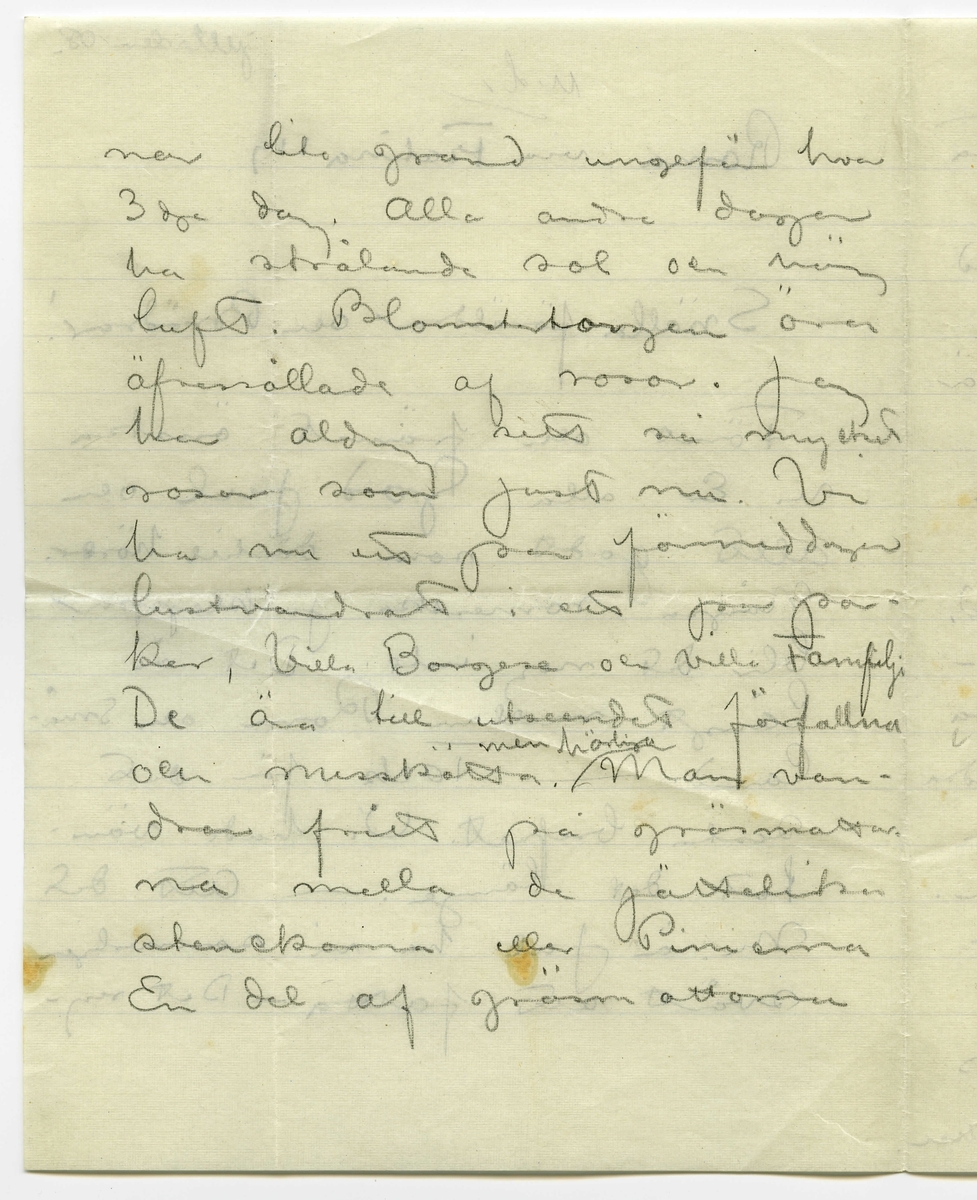 nar lite grand ungefär hvar
3dje dag. Alla andra dagar
ha strålande sol och härlig
luft. Blomstertorgen öfver
åfverållade af rosor. Jag
har aldrig sett så mycket
rosor som just nu. Vi
ha nu ett par förmiddagar
lustvandrat i ett par par-
ker, Villa Borgese och Villa Famfilji
De äro till utseendet förfallna
och misskötta. men härliga Man van-
drar fritt på gräsmattor-
na mella de jättelika
steneckarna eller Pinierna
En del af gräsmattorna